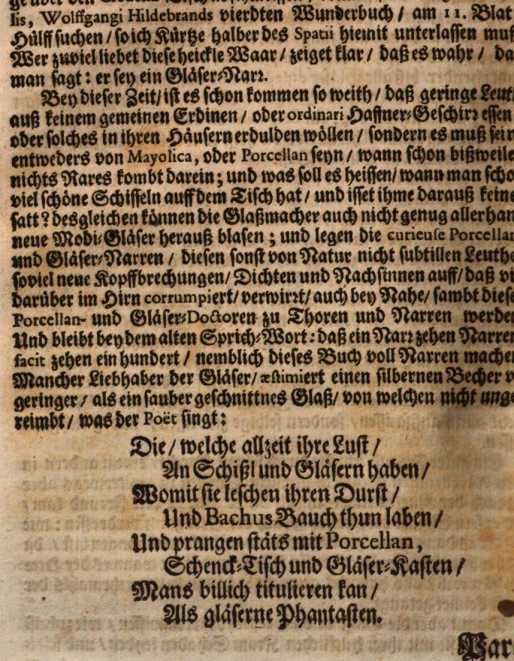 lis, Wolffgangi Hildebrands vierdten Wunderbuch / am 11. Blat
Hülff suchen / so ich Kürtze halber des Spatii hiemit unterlassen muß
Wer zuviel liebet diese heickle Waar / zeiget klar / daß es wahr / da
man sagt: er sey ein Gläser-Narꝛ.
Bey dieser Zeit / ist es schon kommen so weith / daß geringe Leut
auß keinem gemeinen Erdinen / oder ordinari Haffner-Geschirꝛ essen
oder solches in ihren Häusern erdulden wöllen / sondern es muß sein
entweders von Mayolica, oder Porcellan seyn / wann schon bißweile
nichts Rares kombt darein; und was soll es heissen / wann man scho
viel schöne Schisseln auff dem Tisch hat / und isset ihme darauß keine
satt? desgleichen können die Glaßmacher auch nicht genug allerhan
neue Modi-Gläser herauß blasen; und legen die curieuse Porcellan
und Gläser-Narren / diesen sonst von Natur nicht subtillen Leuthe
soviel neue Kopffbrechungen / Dichten und Nachsinnen auff / daß vi
darüber im Hirn corrumpiert / verwirꝛt / auch bey Nahe / sambt diese
Porcellan- und Gläser-Doctoren zu Thoren und Narren werden
Und bleibt bey dem alten Sprich-Wort: daß ein Narꝛ zehen Narren
facit zehen ein hundert / nemblich dieses Buch voll Narren machen
Mancher Liebhaber der Gläser / æstimiert einen silbernen Becher v
geringer / als ein sauber geschnittnes Glaß / von welchen nicht unge
reimbt / was der Poët singt:
Die / welche allzeit ihre Lust /
An Schißl und Gläsern haben /
Womit sie leschen ihren Durst /
Und Bachus Bauch thun laben /
Und prangen stäts mit Porcellan,
Schenck-Tisch und Gläser-Kasten /
Mans billich titulieren kan /
Als gläserne Phantasten.
War